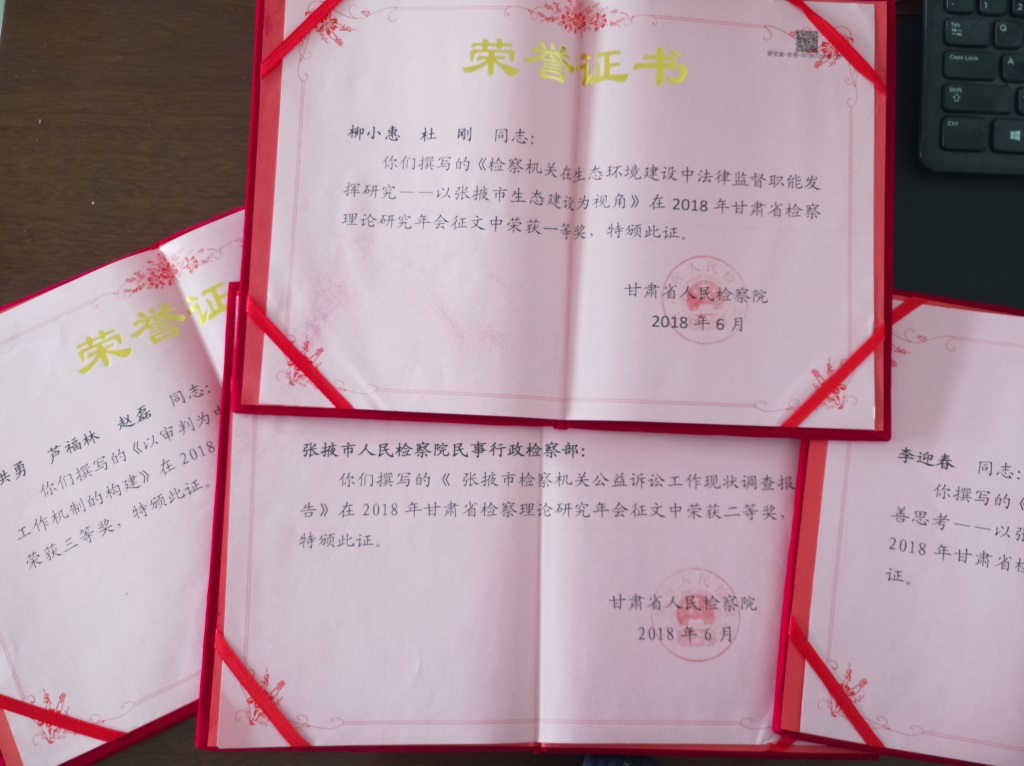 荣誉证书
柳小惠 杜 刚 同志：
你们撰写的《检察机关在生态环境建设中法律监督职能发
挥研究——以张掖市生态建设为视角》在 2018 年甘肃省检察
理论研究年会征文中荣获一等奖，特颁此证。
甘肃省人民检察院
2018 年 6 月
荣誉证
洪勇 芦福林 赵磊 同志：
你们撰写的《以审判为中
工作机制的构建》在 2018
荣获三等奖，特颁此证。
张掖市人民检察院民事行政检察部：
你们撰写的《 张掖市检察机关公益诉讼工作现状调查报
告》在 2018 年甘肃省检察理论研究年会征文中荣获二等奖，
特颁此证。
甘肃省人民检察院
2018 年 6 月
李迎春 同志：
你撰写的《
善思考——以张
2018 年甘肃省检
证。
Tab
Q
Caps Lock
A
Shift
Ctrl